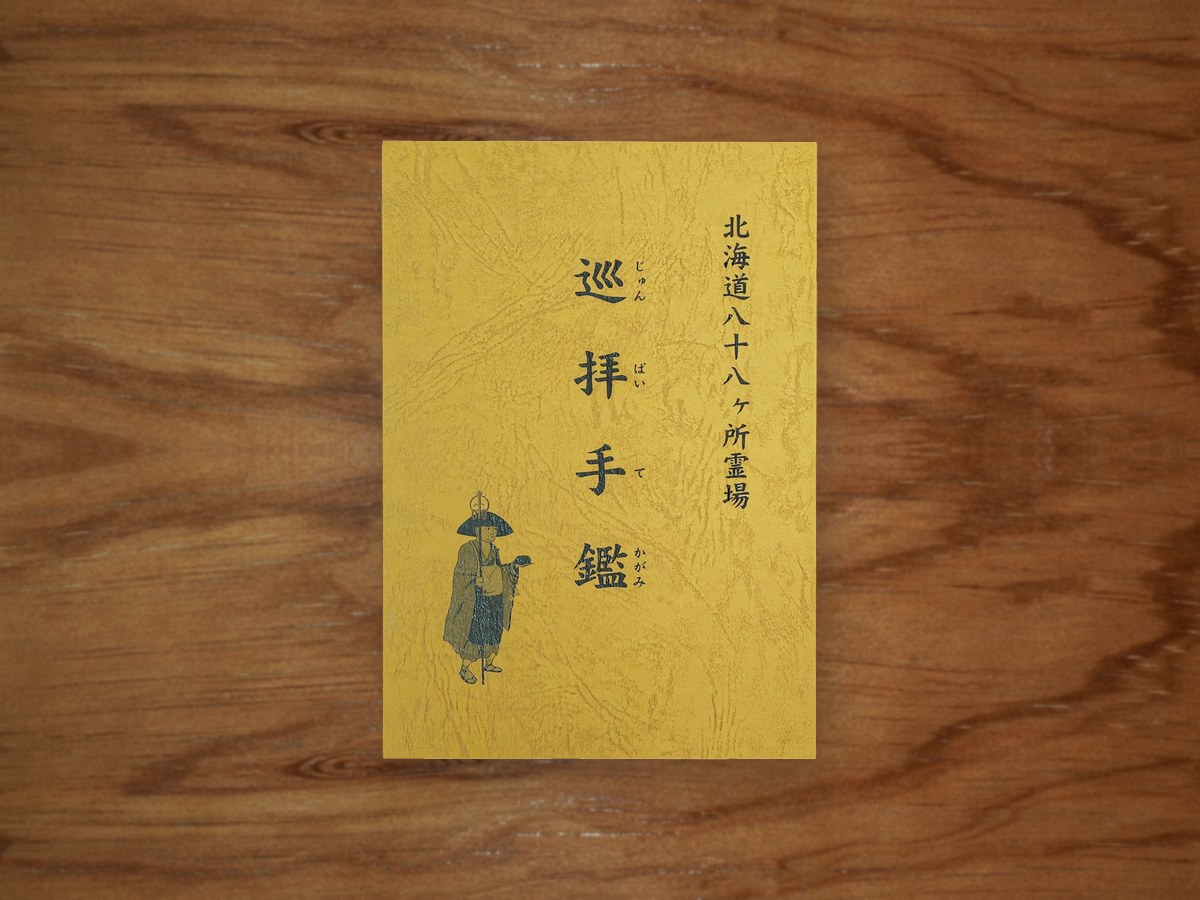 北海道八十八ヶ所霊場
じゅん ばい て かがみ
巡拝手鑑